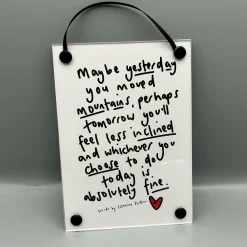 Maybe yesterday
you moved
mountains, perhaps
tomorrow you'll
feel less inclined
and whichever you
choose to do
today is
absolutely fine.
words by Catherine